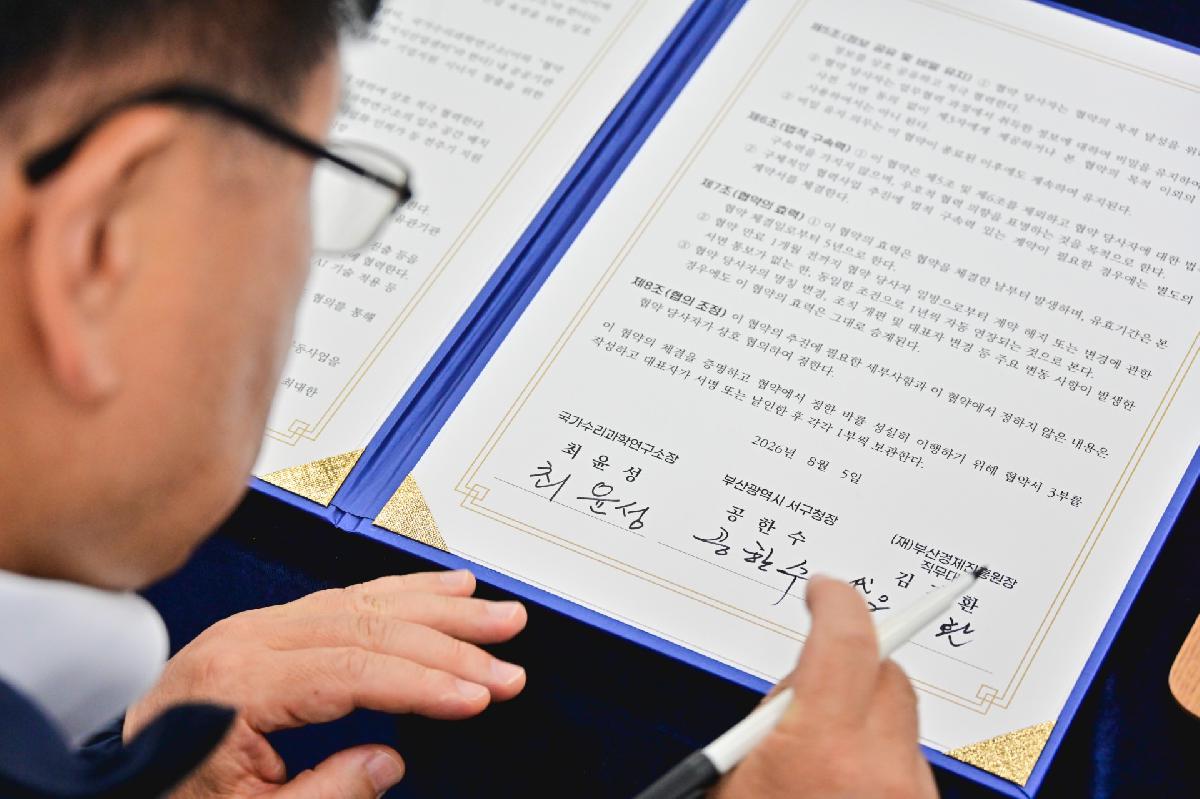 국가수리과학연구소(이하 "협약
내 공공기관
기업지원 시너지 창출을 위한
대하여 상호 적극 협력한다.
연구소의 입주 공간 매치
인허가 등 전주기 지원
유관기관
진출 등을
협력한다.
AI 기술 적용 등
협의를 통해
동사업은
최대한
제5조(정보 공유 및 비밀 유지) ① 협약 당사자는 협약의 목적 달성을 위
정보를 상호 공유하고 적극 협력한다.
② 협약 당사자는 업무협약 과정에서 취득한 정보에 대하여 비밀을 유지하며
사전 서면 동의 없이 제3자에게 제공하거나 본 협약의 목적 이외의
사용하여서는 아니 된다.
③ 비밀 유지 의무는 이 협약이 종료된 이후에도 계속하여 유지된다.
제6조(법적 구속력) ① 이 협약은 제5조 및 제6조를 제외하고 협약 당사자에 대한 법
구속력을 가지지 않으며, 우호적 협력 의향을 표명하는 것을 목적으로 한다.
② 구체적인 협력사업 추진에 법적 구속력 있는 계약이 필요한 경우에는 별도의
계약서를 체결한다.
제7조(협약의 효력) ① 이 협약의 효력은 협약을 체결한 날부터 발생하며, 유효기간은 본
협약 체결일로부터 5년으로 한다.
② 협약 만료 1개월 전까지 협약 당사자 일방으로부터 계약 해지 또는 변경에 관한
서면 통보가 없는 한, 동일한 조건으로 1년씩 자동 연장되는 것으로 본다.
③ 협약 당사자의 명칭 변경, 조직 개편 및 대표자 변경 등 주요 변동 사항이 발생한
경우에도 이 협약의 효력은 그대로 승계된다.
제8조(협의 조정) 이 협약의 추진에 필요한 세부사항과 이 협약에서 정하지 않은 내용은
협약 당사자가 상호 협의하여 정한다.
이 협약의 체결을 증명하고 협약에서 정한 바를 성실히 이행하기 위해 협약서 3부를
작성하고 대표자가 서명 또는 날인한 후 각각 1부씩 보관한다.
2026년 8월 5일
국가수리과학연구소장
최 윤 성
최 윤성
부산광역시 서구청장
공 한 수
공 한 수
(재)부산경제진흥원장
직무대
김 환
환